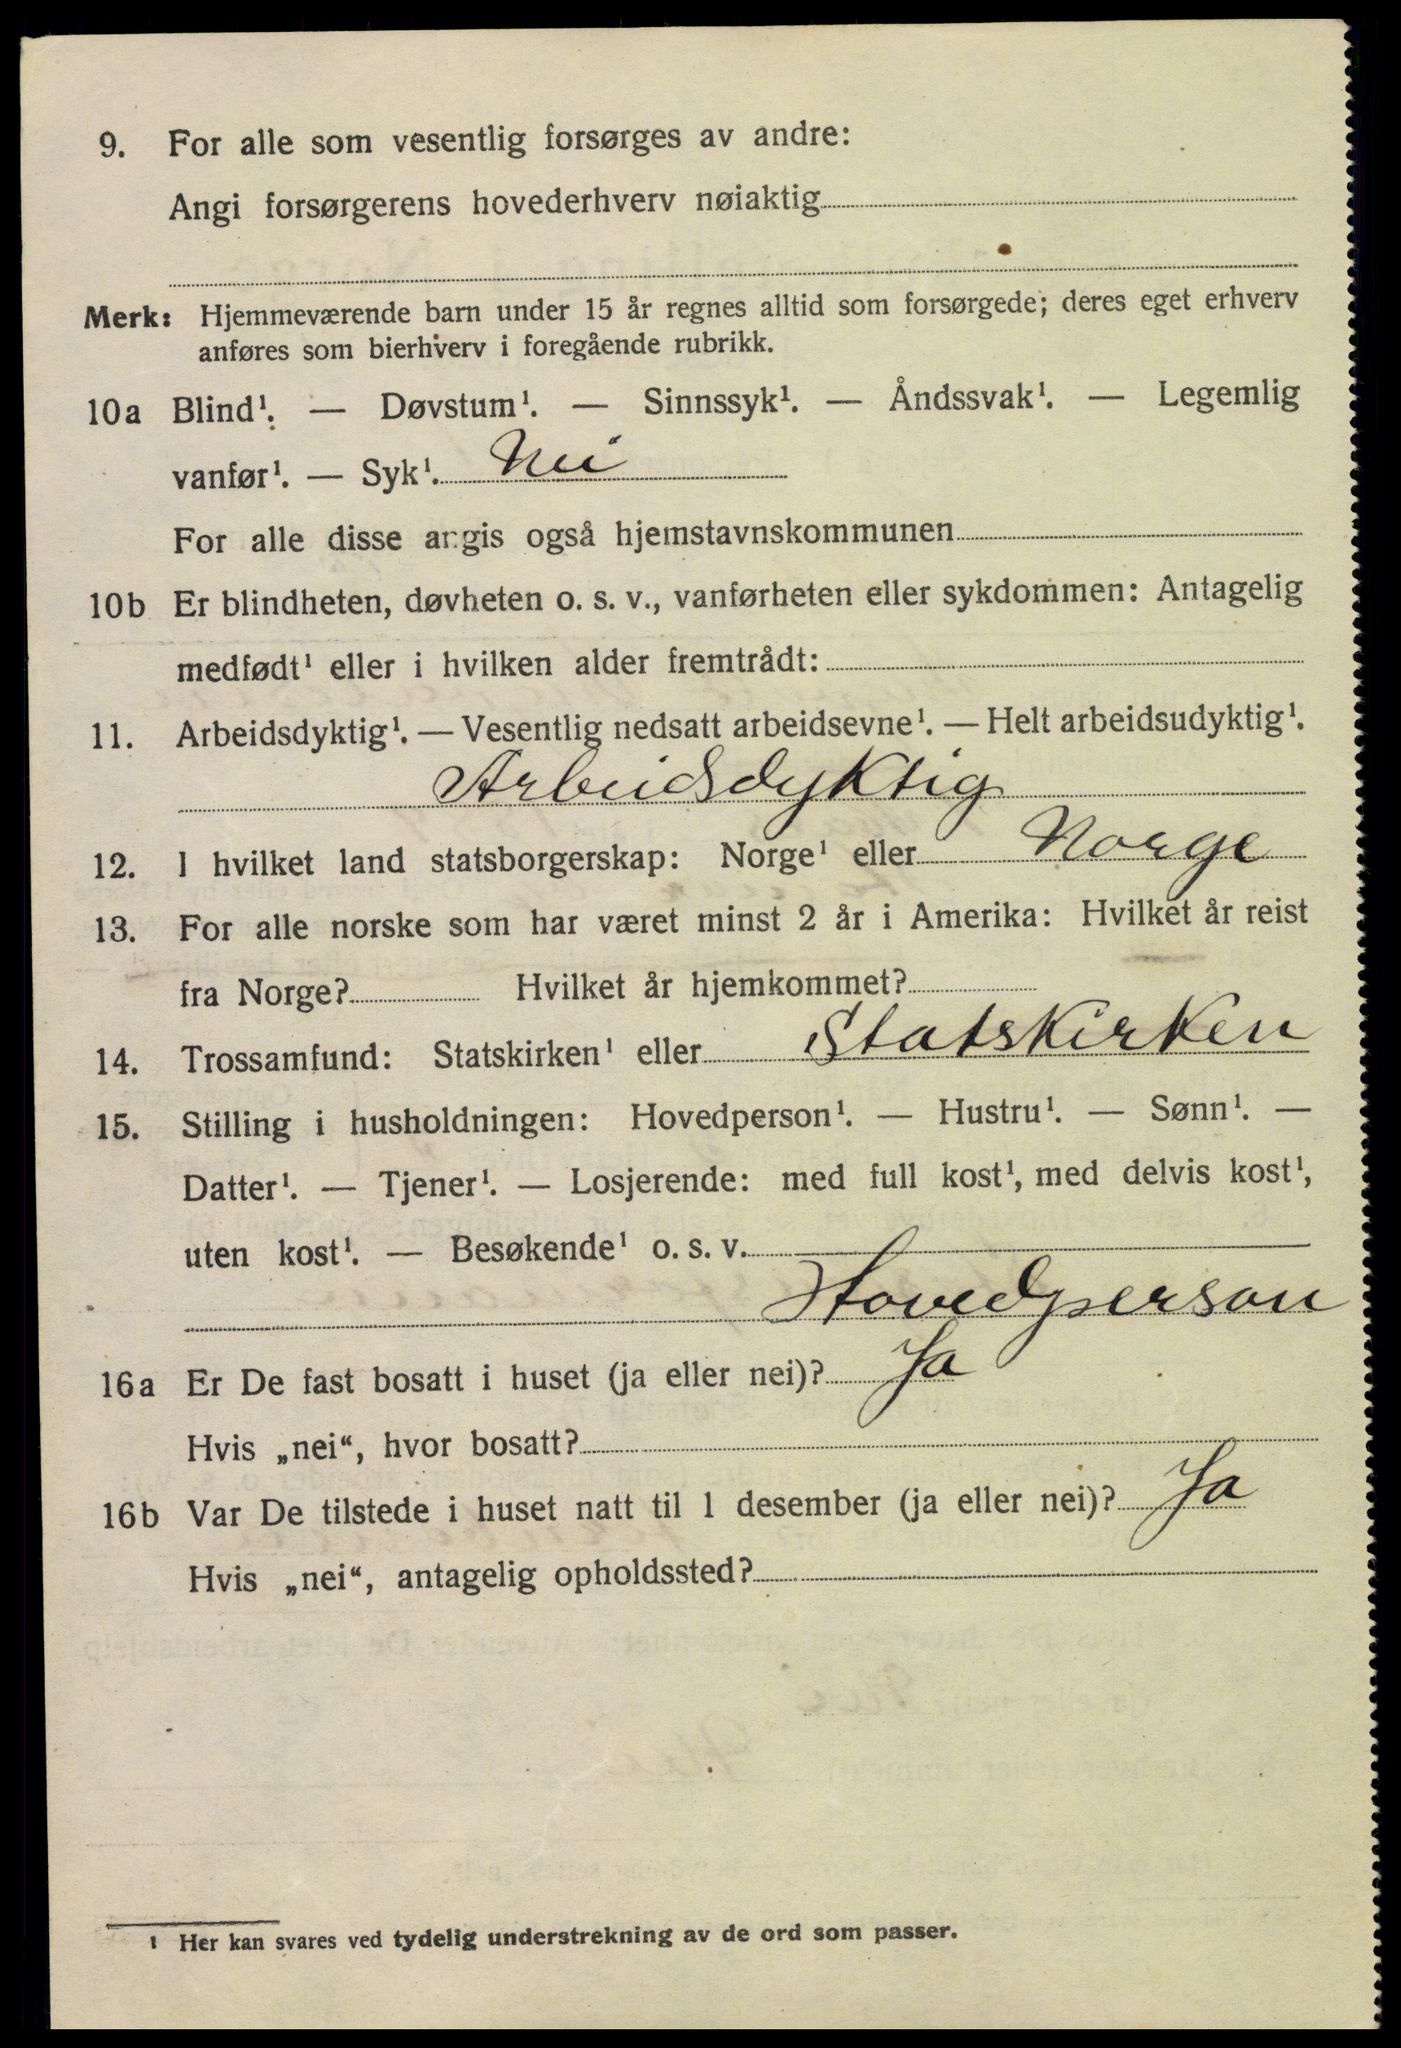 9. For alle som vesentlig forsørges av andre:
Angi forsørgerens hovederhverv nøiaktig
Merk: Hjemmeværende barn under 15 år regnes alltid som forsørgede; deres eget erhverv
anføres som bierhverv i foregående rubrikk.
10a Blind¹. — Døvstum¹. — Sinnssyk¹. — Åndssvak¹. — Legemlig
vanfør¹. — Syk¹. Nei
For alle disse angis også hjemstavnskommunen
10b Er blindheten, døvheten o. s. v., vanførheten eller sykdommen: Antagelig
medfødt¹ eller i hvilken alder fremtrådt:
11. Arbeidsdyktig¹. — Vesentlig nedsatt arbeidsevne¹. — Helt arbeidsudyktig¹.
Arbeidsdyktig
12. I hvilket land statsborgerskap: Norge¹ eller Norge
13. For alle norske som har været minst 2 år i Amerika: Hvilket år reist
fra Norge? Hvilket år hjemkommet?
14. Trossamfund: Statskirken¹ eller Statskirken
15. Stilling i husholdningen: Hovedperson¹. — Hustru¹. — Sønn¹. —
Datter¹. — Tjener¹. — Losjerende: med full kost¹, med delvis kost¹,
uten kost¹. — Besøkende¹ o. s. v.
Hovedperson
16a Er De fast bosatt i huset (ja eller nei)? Ja
Hvis „nei“, hvor bosatt?
16b Var De tilstede i huset natt til 1 desember (ja eller nei)? Ja
Hvis „nei“, antagelig opholdssted?
¹ Her kan svares ved tydelig understrekning av de ord som passer.